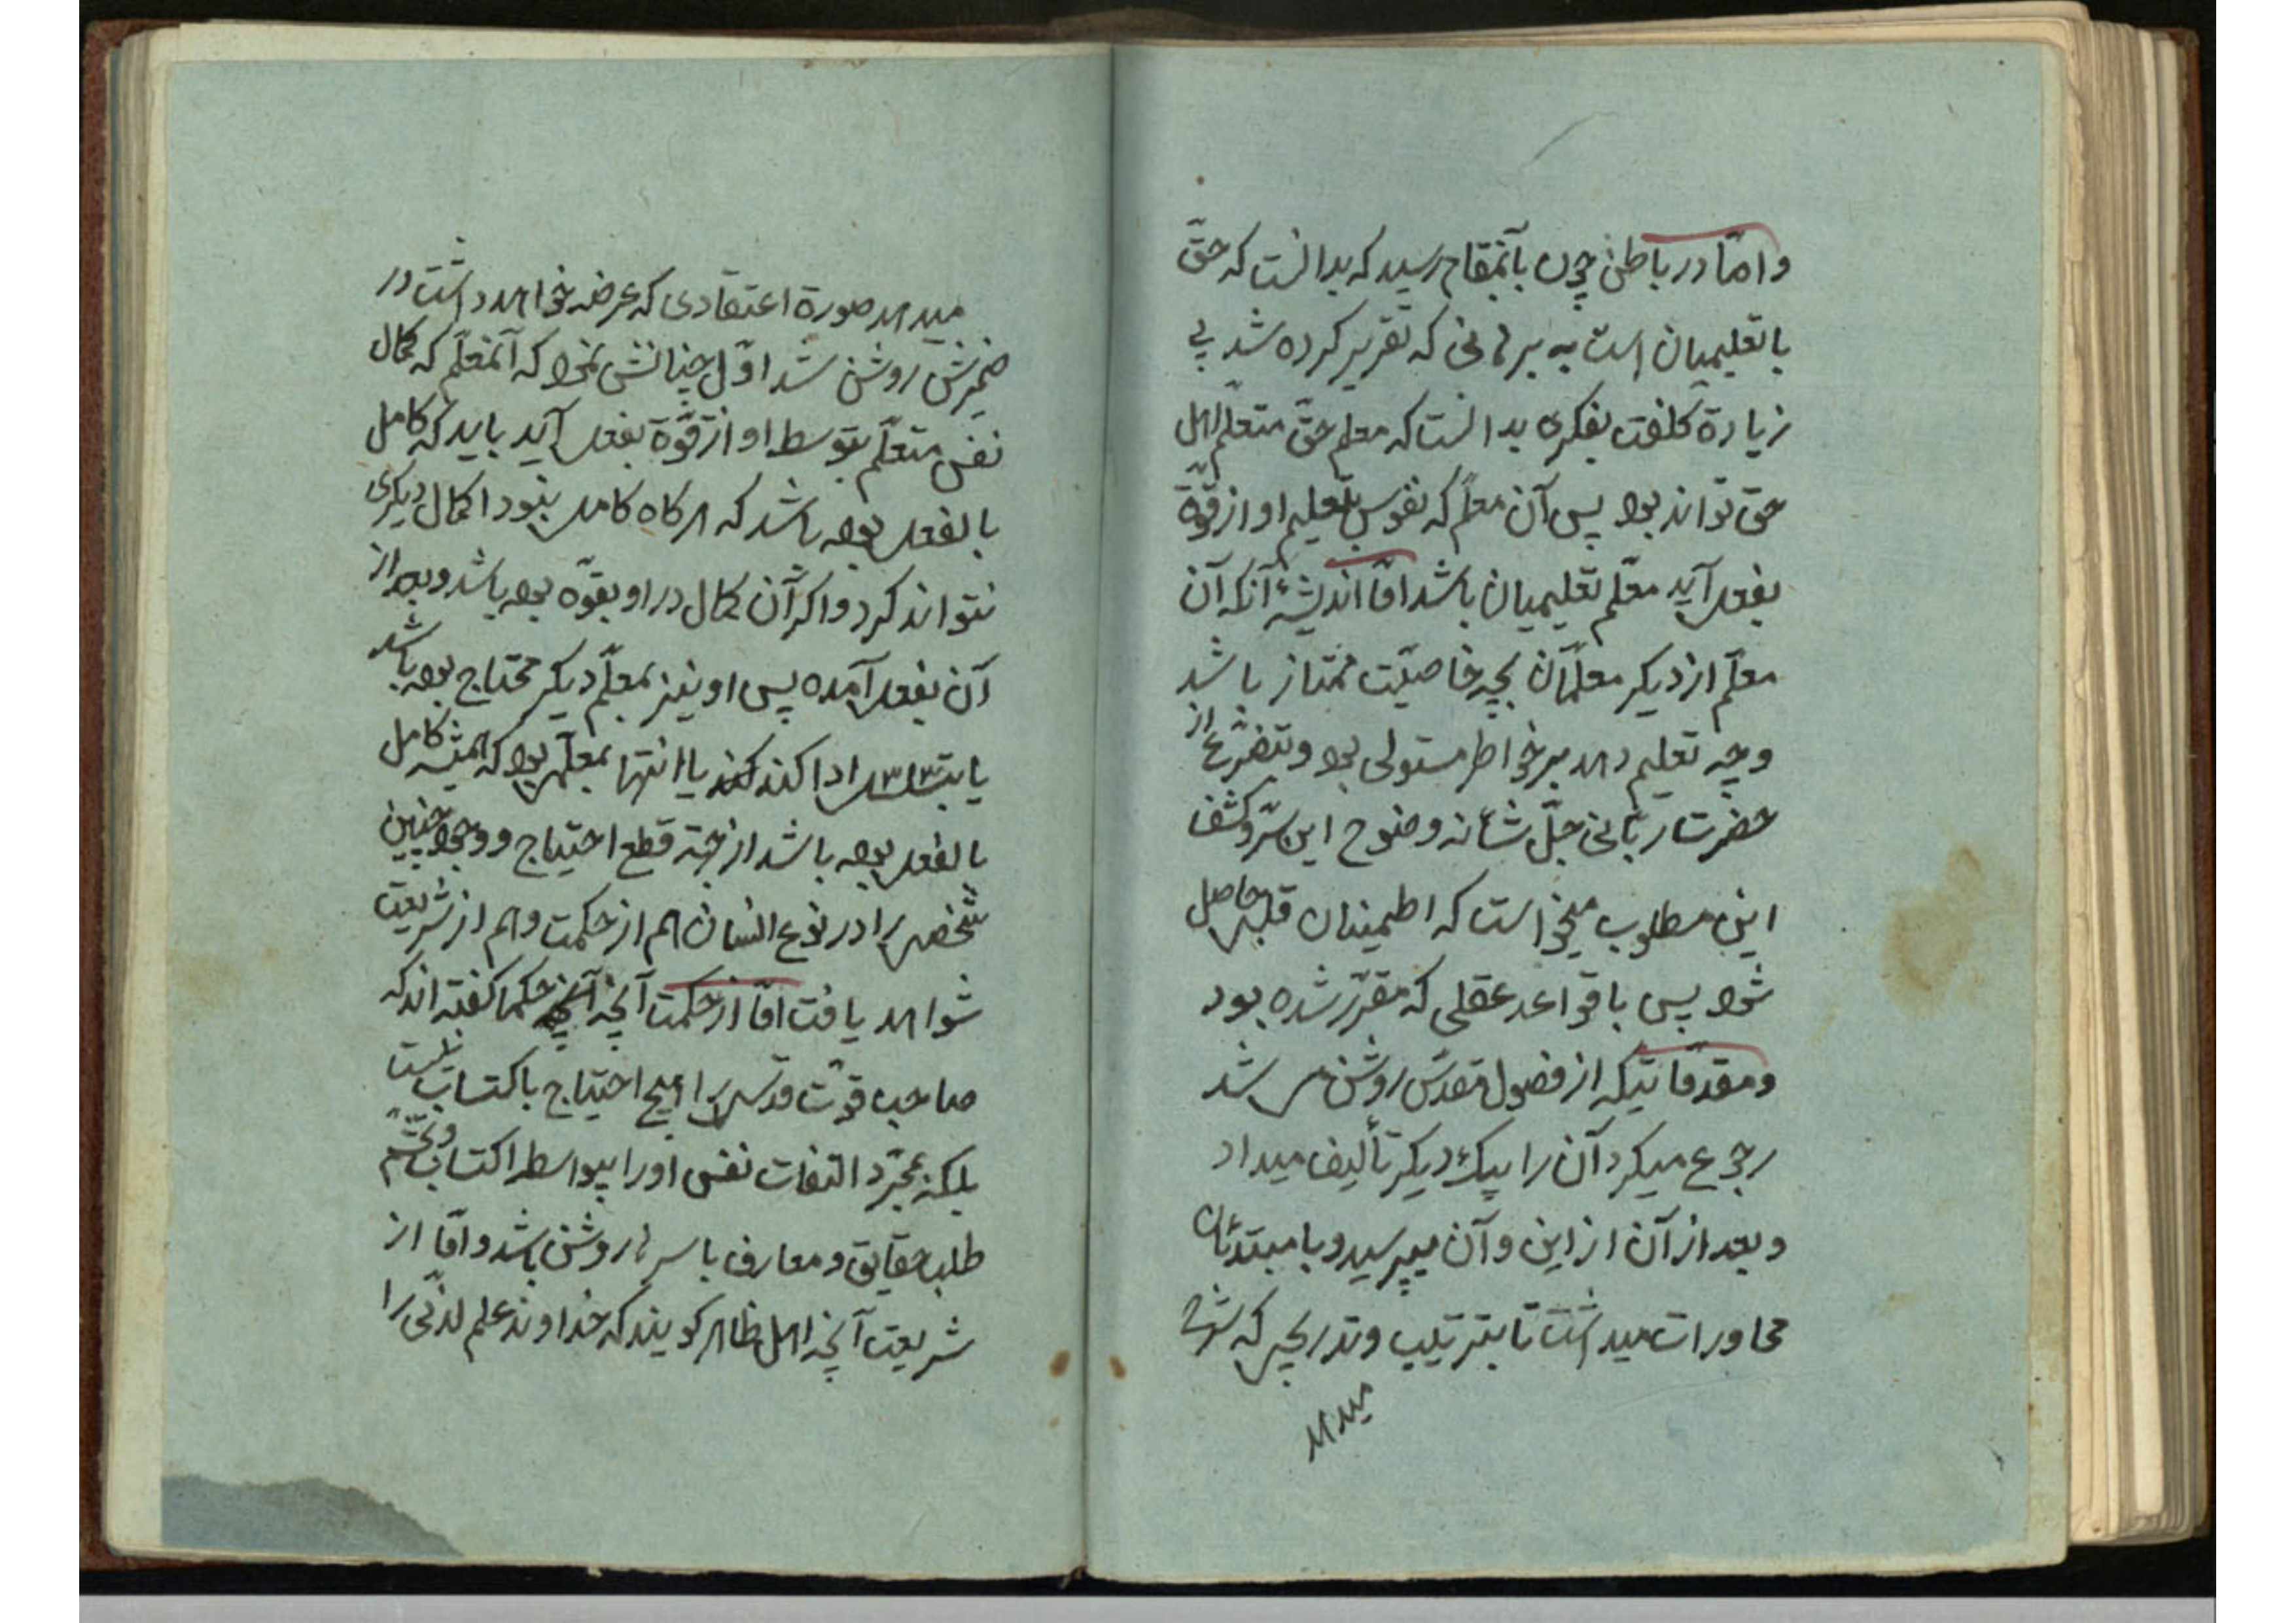 و امّا در باطن چون بآنمقام رسید که بدانست که حقّ
با تعلیمیان است به برهانی که تقریر کرده شد بی
زیادة کلفت بفکری بدانست که معلم حقّ متعلّم اهل
حق تواند بود پس آن معلم که نفوس بتعلیم او از قوّة
بفعل آید معلّم تعلیمیان باشد امّا اندیشهٔ آنکه آن
معلّم از دیگر معلّمان بچه خاصیّت ممتاز باشد
و چه تعلیم دهد بر خواطر مستولی بود و بتضرّع از
حضرت ربّانی جلّ شأنه وضوح این سرّ و کشف
این مطلوب میخواست که اطمینان قلبی حاصل
شود پس با قواعد عقلی که مقرّر شده بود
و مقدّماتیکه از فصول مقدّس روشن می شد
رجوع میکرد آن را بیک دیگر تألیف میداد
و بعد از آن از این و آن میپرسید و با مبتدئان
محاورات میداشت تا بترتیب و تدریجی که شرح
میدهد
میدهد صورة اعتقادی که عرضه خواهد داشت در
ضمیرش روشن شد اوّل چنانش نمود که آنمعلّم که کمال
نفس متعلّم بتوسط او از قوّة بفعل آید باید که کامل
بالفعل بوده باشد که هرگاه کامل بنبود اکمال دیگری
نتواند کرد و اگر آن کمال در او بقوّه بوده باشد و بعد از
آن بفعل آمده پس او نیز بمعلّم دیگر محتاج بوده باشد
یا بتسلسل ادا کند کند یا انتها بمعلّمی بود که همیشه کامل
بالفعل بوده باشد از جهة قطع احتیاج و وجود چنین
شخصی را در نوع انسان هم از حکمت و هم از شریعت
شواهد یافت امّا از حکمت آنچه آنچه حکما گفته اند که
صاحب قوّت قدسی را هیچ احتیاج باکتساب نیست
بلکه بمجرّد التفات نفس او را بیواسطه اکتساب و تجشّم
طلب حقایق و معارف باسرها روشن باشد و امّا از
شریعت آنچه اهل ظاهر گویند که خداوند علم لدنّی را